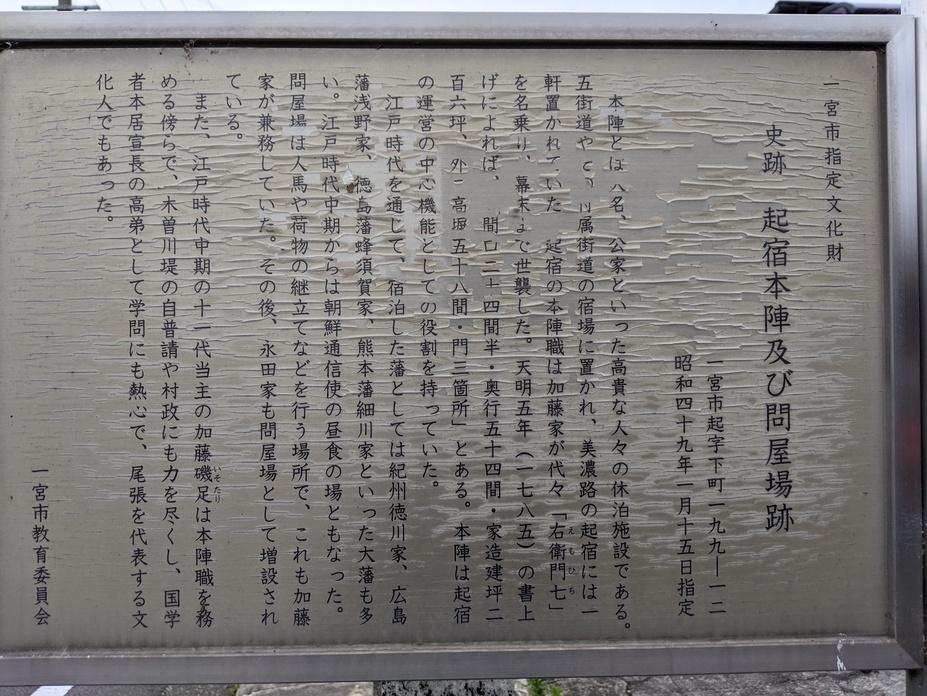 一宮市指定文化財
史跡 起宿本陣及び問屋場跡
一宮市起字下町一九九―一二
昭和四十九年一月十五日指定
本陣とは 名、公家といった高貴な人々の休泊施設である。
五街道や 属街道の宿場に置かれ、美濃路の起宿には一
軒置かれていた 起宿の本陣職は加藤家が代々「右衛門七」
えもひち
を名乗り、幕末まで世襲した。天明五年（一七八五）の書上
げによれば、 間口二十四間半・奥行五十四間・家造建坪二
百六坪、外 高塀五十八間・門三箇所」とある。本陣は起宿
の運営の中心機能としての役割を持っていた。
江戸時代を通して、宿泊した藩としては紀州徳川家、広島
藩浅野家、徳島藩蜂須賀家、熊本藩細川家といった大藩も多
い。江戸時代中期からは朝鮮通信使の昼食の場ともなった。
問屋場は人馬や荷物の継立てなどを行う場所で、これも加藤
家が兼務していた。その後、永田家も問屋場として増設され
ている。
また、江戸時代中期の十一代当主の加藤磯足は本陣職を務
いそたり
める傍らで、木曽川堤の自普請や村政にも力を尽くし、国学
者本居宣長の高弟として学問にも熱心で、尾張を代表する文
化人でもあった。
一宮市教育委員会